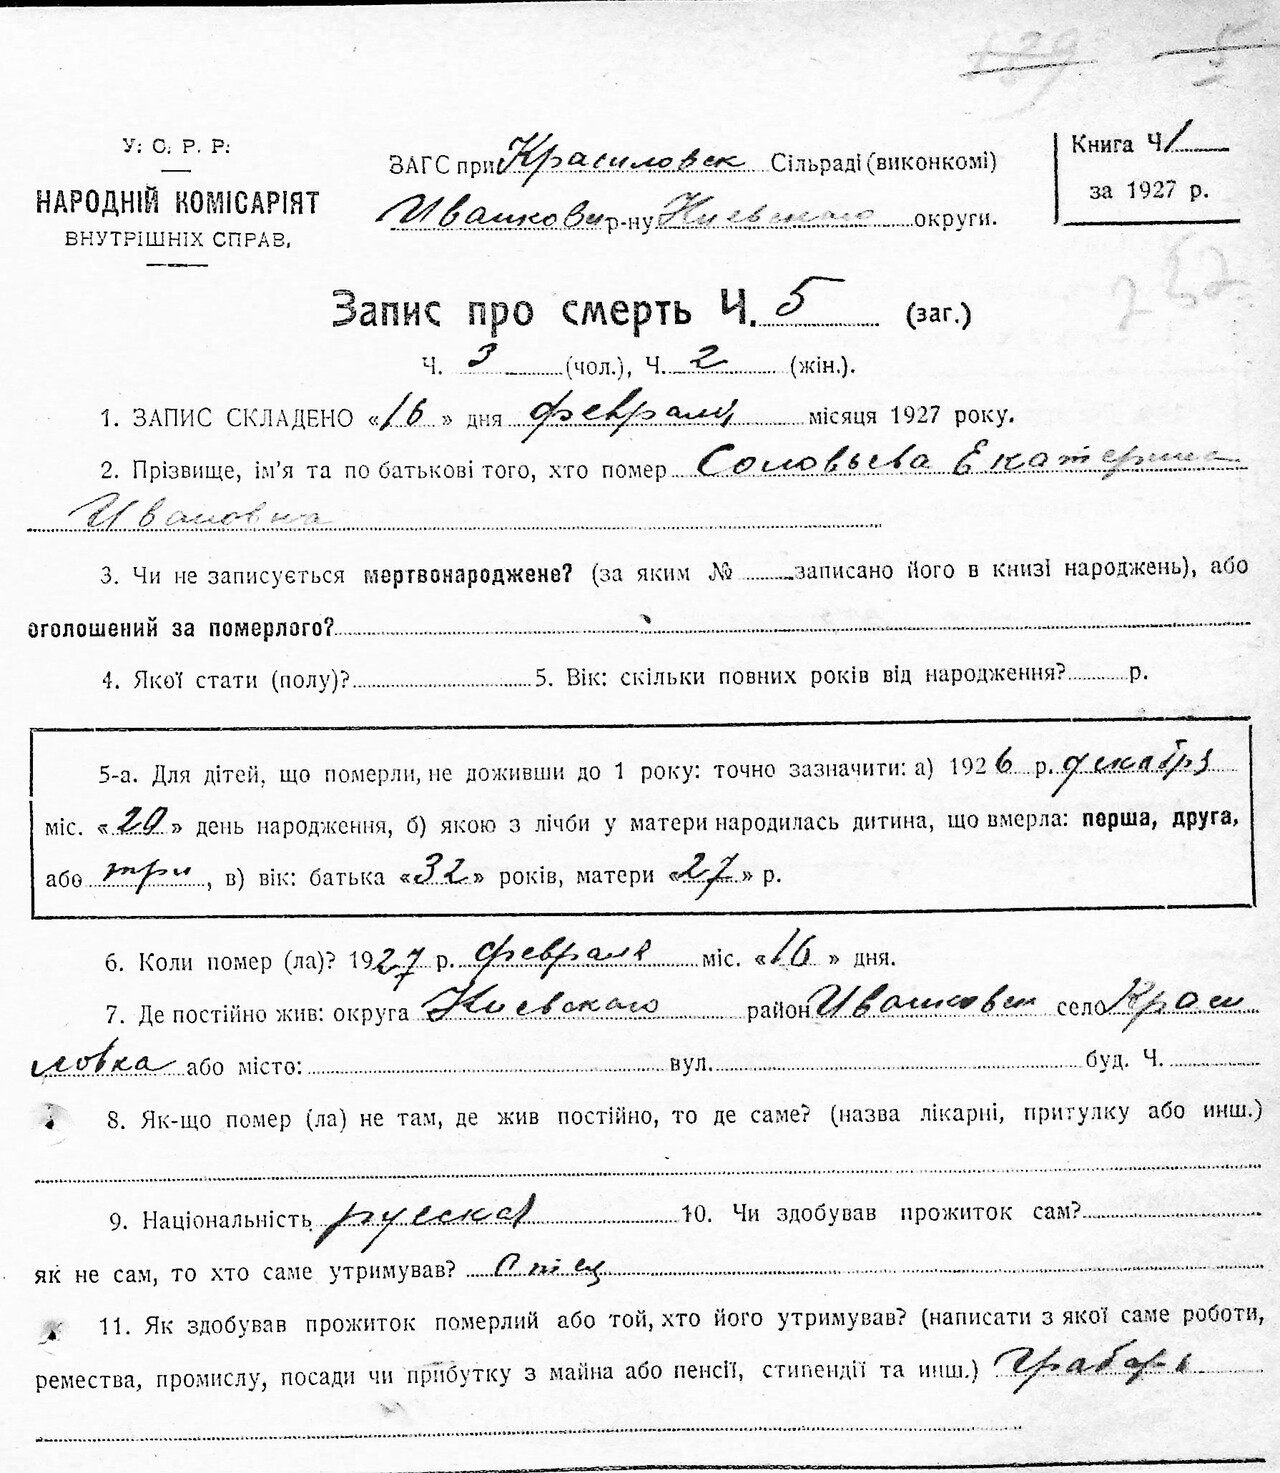 129 5
У. С. Р. Р.
НАРОДНІЙ КОМІСАРІЯТ
ВНУТРІШНІХ СПРАВ.
ЗАГС при Красиловск Сільраді (виконкомі)
Иванкови р-ну Киевского округи.
Книга Ч 1
за 1927 р.
Запис про смерть Ч. 5 (заг.)
Ч. 3 (чол.), Ч. 2 (жін.).
1. ЗАПИС СКЛАДЕНО «16» дня февраля місяця 1927 року.
2. Прізвище, ім'я та по батькові того, хто помер Соловьева Екатерина
Ивановна
3. Чи не записується мертвонароджене? (за яким № записано його в книзі народжень), або
оголошений за померлого?
4. Якої стати (полу)? 5. Вік: скільки повних років від народження? р.
5-а. Для дітей, що померли, не доживши до 1 року: точно зазначити: а) 1926 р. декабря
міс. «20» день народження, б) якою з лічби у матери народилась дитина, що вмерла: перша, друга,
або три, в) вік: батька «32» років, матери «27» р.
6. Коли помер (ла)? 1927 р. февраля міс. «16» дня.
7. Де постійно жив: округа Киевского район Иванковск село Краси
ловка або місто: вул. буд. Ч.
8. Як-що помер (ла) не там, де жив постійно, то де саме? (назва лікарні, притулку або инш.)
9. Національність русская 10. Чи здобував прожиток сам?
як не сам, то хто саме утримував? отец
11. Як здобував прожиток померлий або той, хто його утримував? (написати з якої саме роботи,
ремества, промислу, посади чи прибутку з майна або пенсії, стипендії та инш.) Грабарь